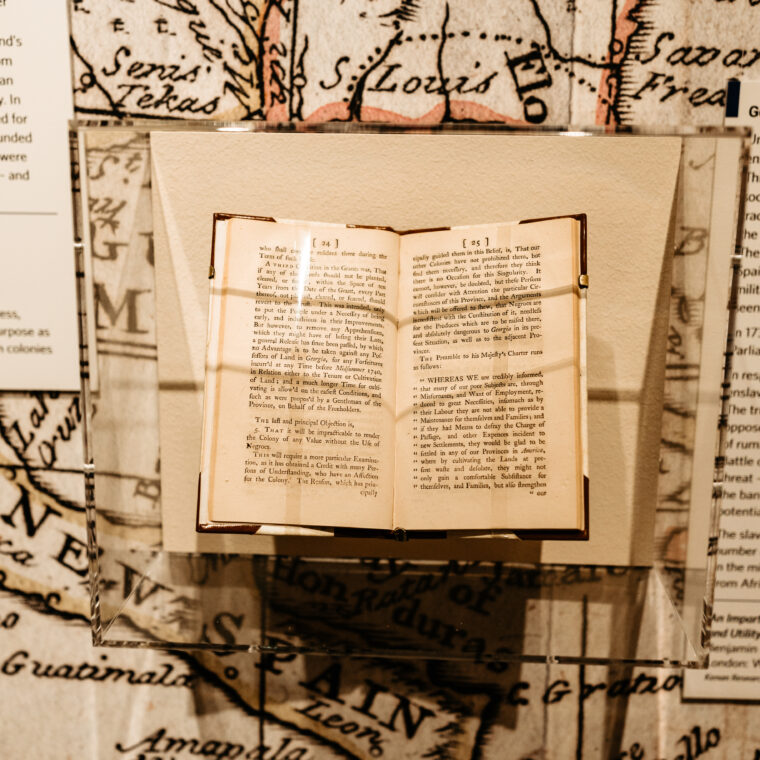 nd's
om
an
y. In
d for
unded
were
– and
ess,
urpose as
n colonies
Senis
Tekas
S. Louis
Flo
Savan
Frea
[ 24 ]
who shall reside there during the
Term of such
A THIRD in the Grants was, That
if any of the Lands should not be planted,
cleared, or within the Space of ten
Years from the Date of the Grant, every Part
thereof, not cleared, or fenced, should
revert to the This was intended, only
to put the People under a Necessity of being
early, and industrious in their Improvements.
But however, to remove any Apprehensions,
which they might have of losing their Lots,
a general Release has since been passed, by which
no Advantage is to be taken against any Pos-
sessors of Land in Georgia, for any Forfeitures
incurr'd at any Time before Midsummer 1740,
in Relation either to the Tenure or Cultivation
of Land; and a much longer Time for culti-
vating is allow'd on the easiest Conditions, and
such as were propos'd by a Gentleman of the
Province, on Behalf of the Freeholders.
THE last and principal Objection is,
5. THAT it will be impracticable to render
the Colony of any Value without the Use of
Negroes.
THIS will require a more particular Examina-
tion, as it has obtained a Credit with many Per-
sons of Understanding, who have an Affection
for the Colony. The Reason, which has prin-
cipally
[ 25 ]
cipally guided them in this Belief, is, That our
other Colonies have not prohibited them, but
find them necessary, and therefore they think
there is no Occasion for this Singularity. It
cannot, however, be doubted, but these Persons
will consider with Attention the particular Cir-
cumstances of this Province, and the Arguments
which will be offered to shew, that Negroes are
inconsistent with the Constitution of it, needless
for the Produces which are to be raised there,
and absolutely dangerous to Georgia in its pre-
sent Situation, as well as to the adjacent Pro-
vinces.
THE Preamble to his Majesty's Charter runs
as follows:
" WHEREAS WE are credibly informed,
" that many of our poor Subjects are, through
" Misfortunes, and Want of Employment, re-
" duced to great Necessities, insomuch as by
" their Labour they are not able to provide a
" Maintenance for themselves and Families; and
" if they had Means to defray the Charge of
" Passage, and other Expences incident to
" new Settlements, they would be glad to be
" settled in any of our Provinces in America,
" where by cultivating the Lands at pre-
" sent waste and desolate, they might not
" only gain a comfortable Subsistance for
" themselves, and Families, but also strengthen
" our
NEW SPAIN
Guatimala
Leon
Amapala
Honduras
Jamaica
Ratan
C. Gratio
Ge
Un
Thi
soc
rac
the
Spain
milit
seen
In 173
Parlia
In resp
en
The tru
oppose
of rums
Battle o
threat –
the ban
potentia
The slav
number
in the mi
from Afri
An Import
and Utility
Benjamin
London: W
Kenan Resear